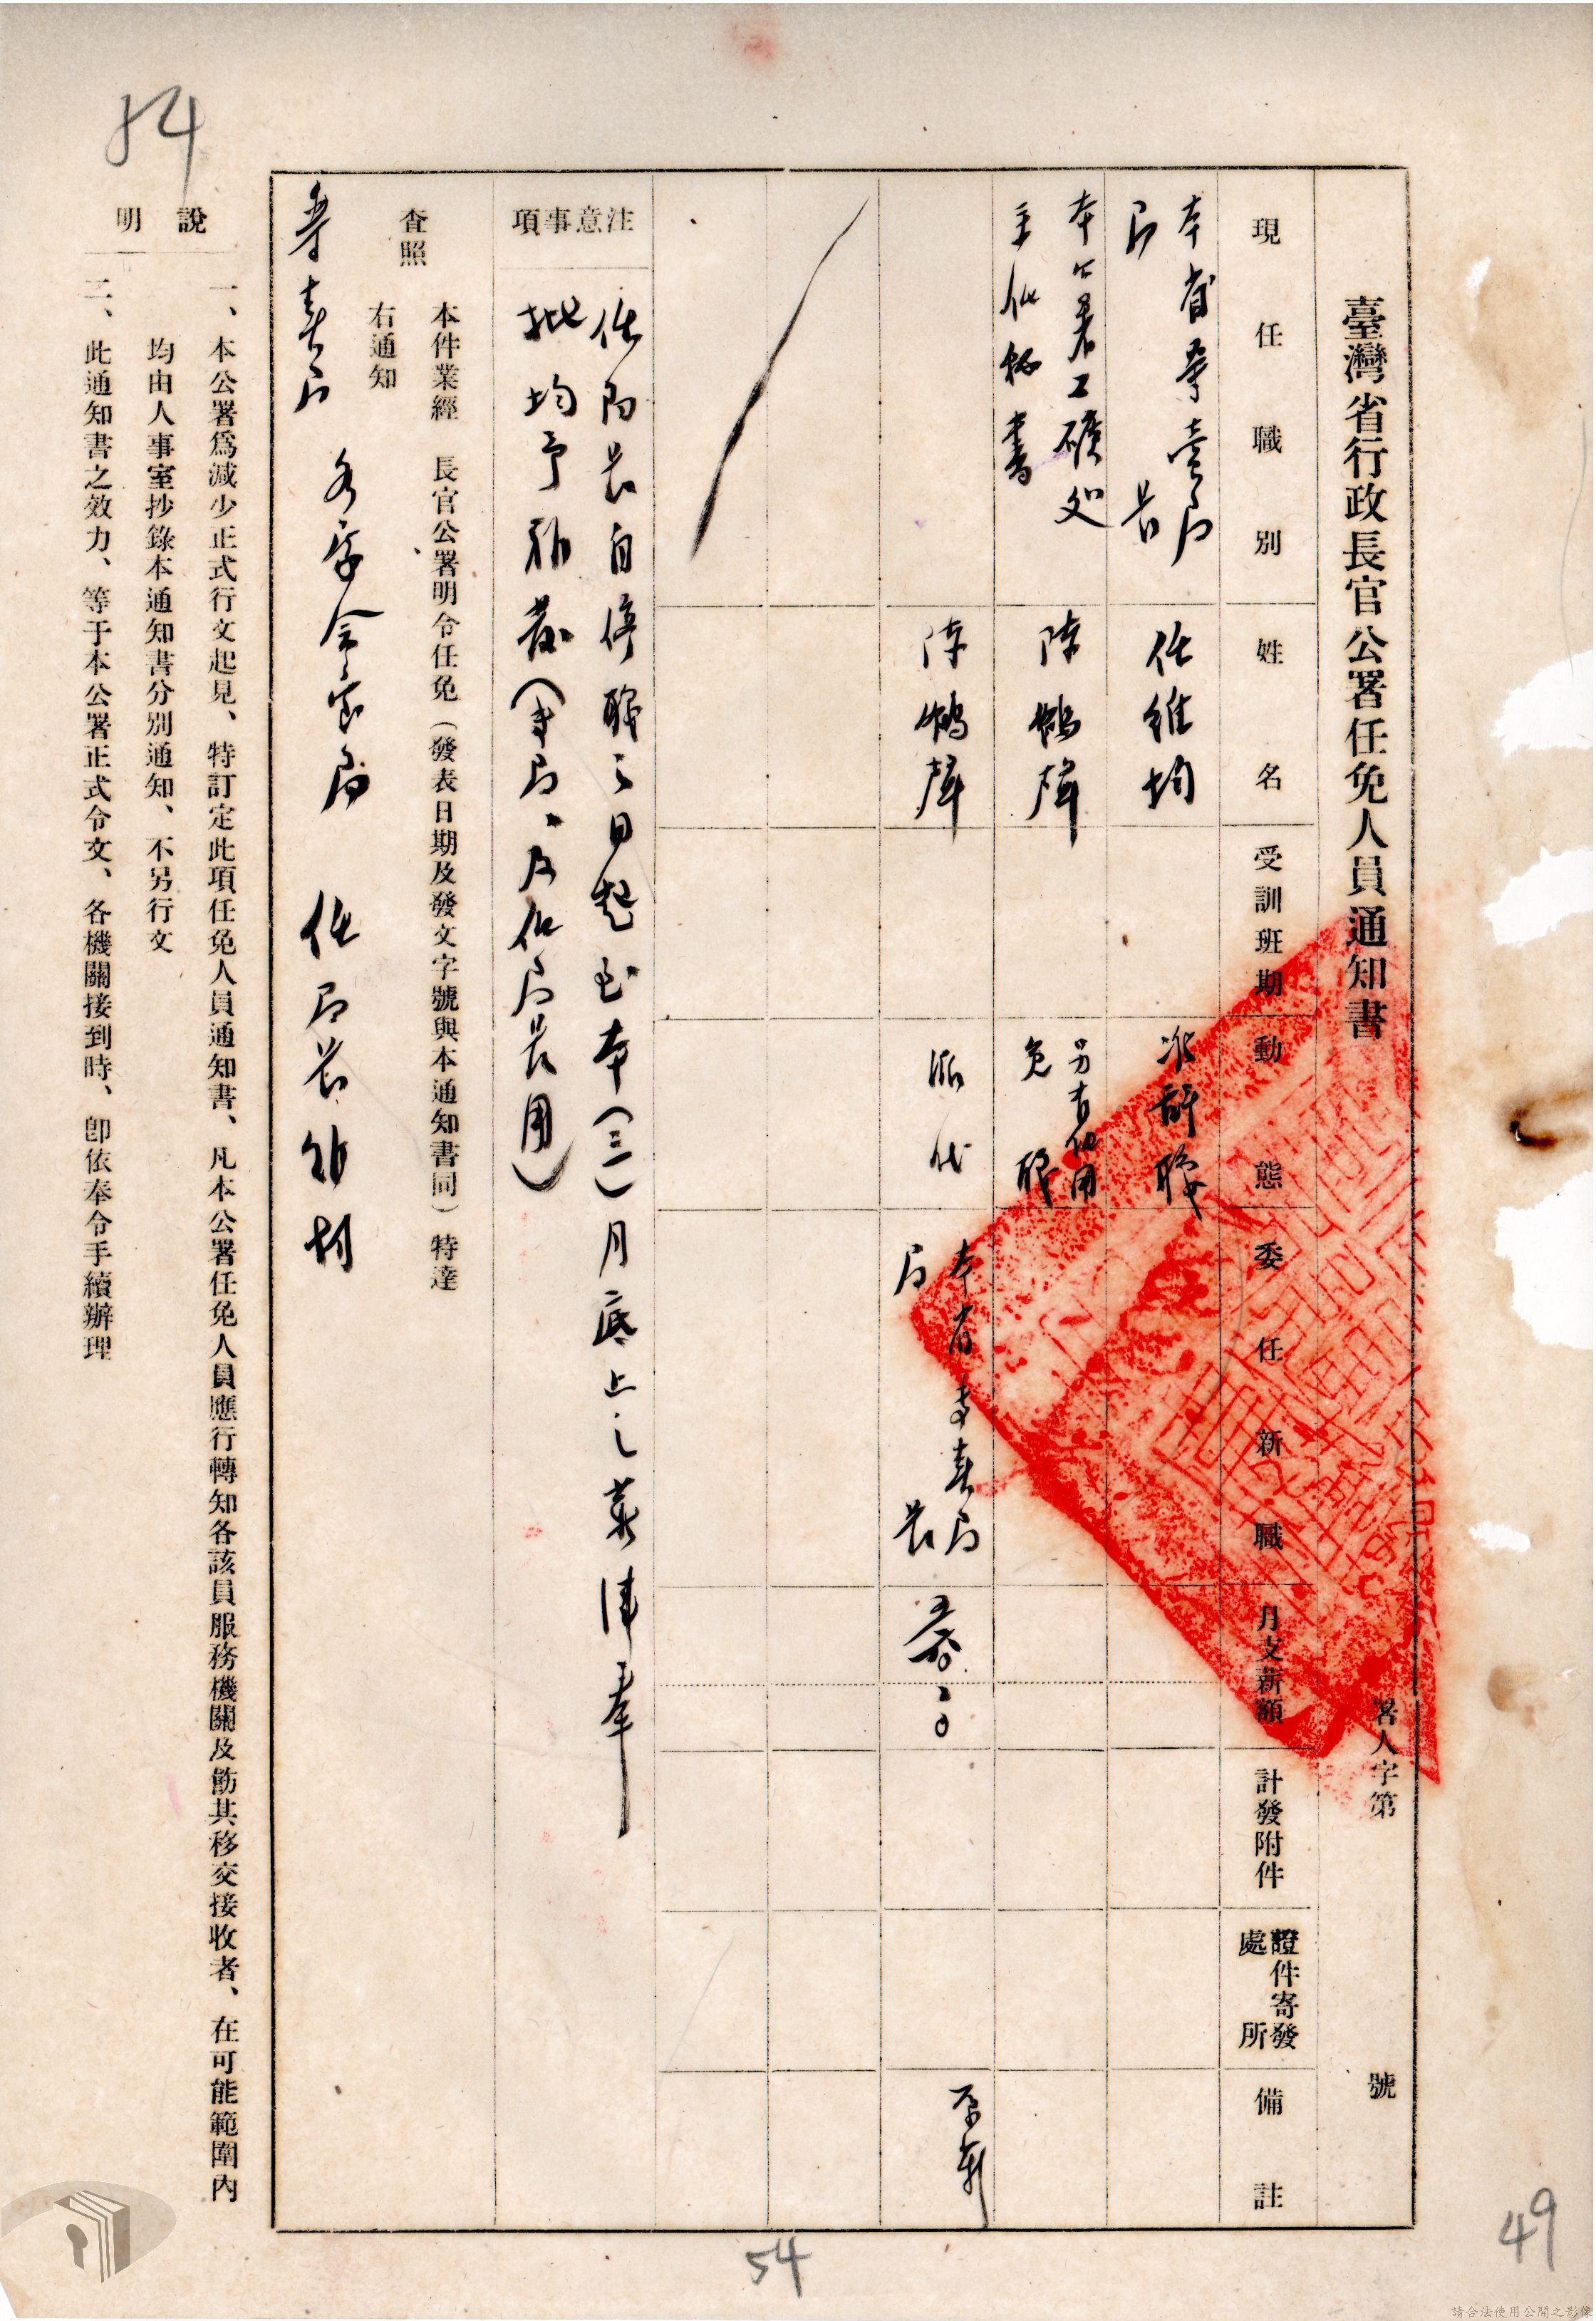 臺灣省行政長官公署任免人員通知書
署人字第 號
現任職別
姓名
受訓班期
動態
委任新職
月支薪額
計發附件
證件寄發處所
備註
本省專賣局
局長
任維均
准辭職
本公署工礦処
主任秘書
陳鶴聲
另有任用
免職
陳鶴聲
派代
本省專賣局
局長
原薪
注意事項
任局長自停職之日起至本(三)月底止之薪津奉
批均予補發(專局、及任局長用)
本件業經 長官公署明令任免(發表日期及發文字號與本通知書同)特達
查照
右通知
專賣局
任局長維均
說明
一、本公署爲減少正式行文起見、特訂定此項任免人員通知書、凡本公署任免人員應行轉知各該員服務機關及飭其移交接收者、在可能範圍內
均由人事室抄錄本通知書分別通知、不另行文
二、此通知書之效力、等于本公署正式令文、各機關接到時、卽依奉令手續辦理
54
54
49
請合法使用公開之影像